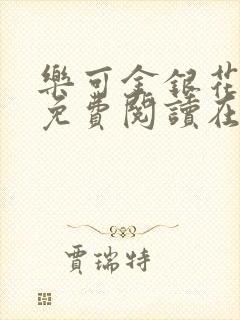 樂可金銀花
免費閱讀在
賈瑞特